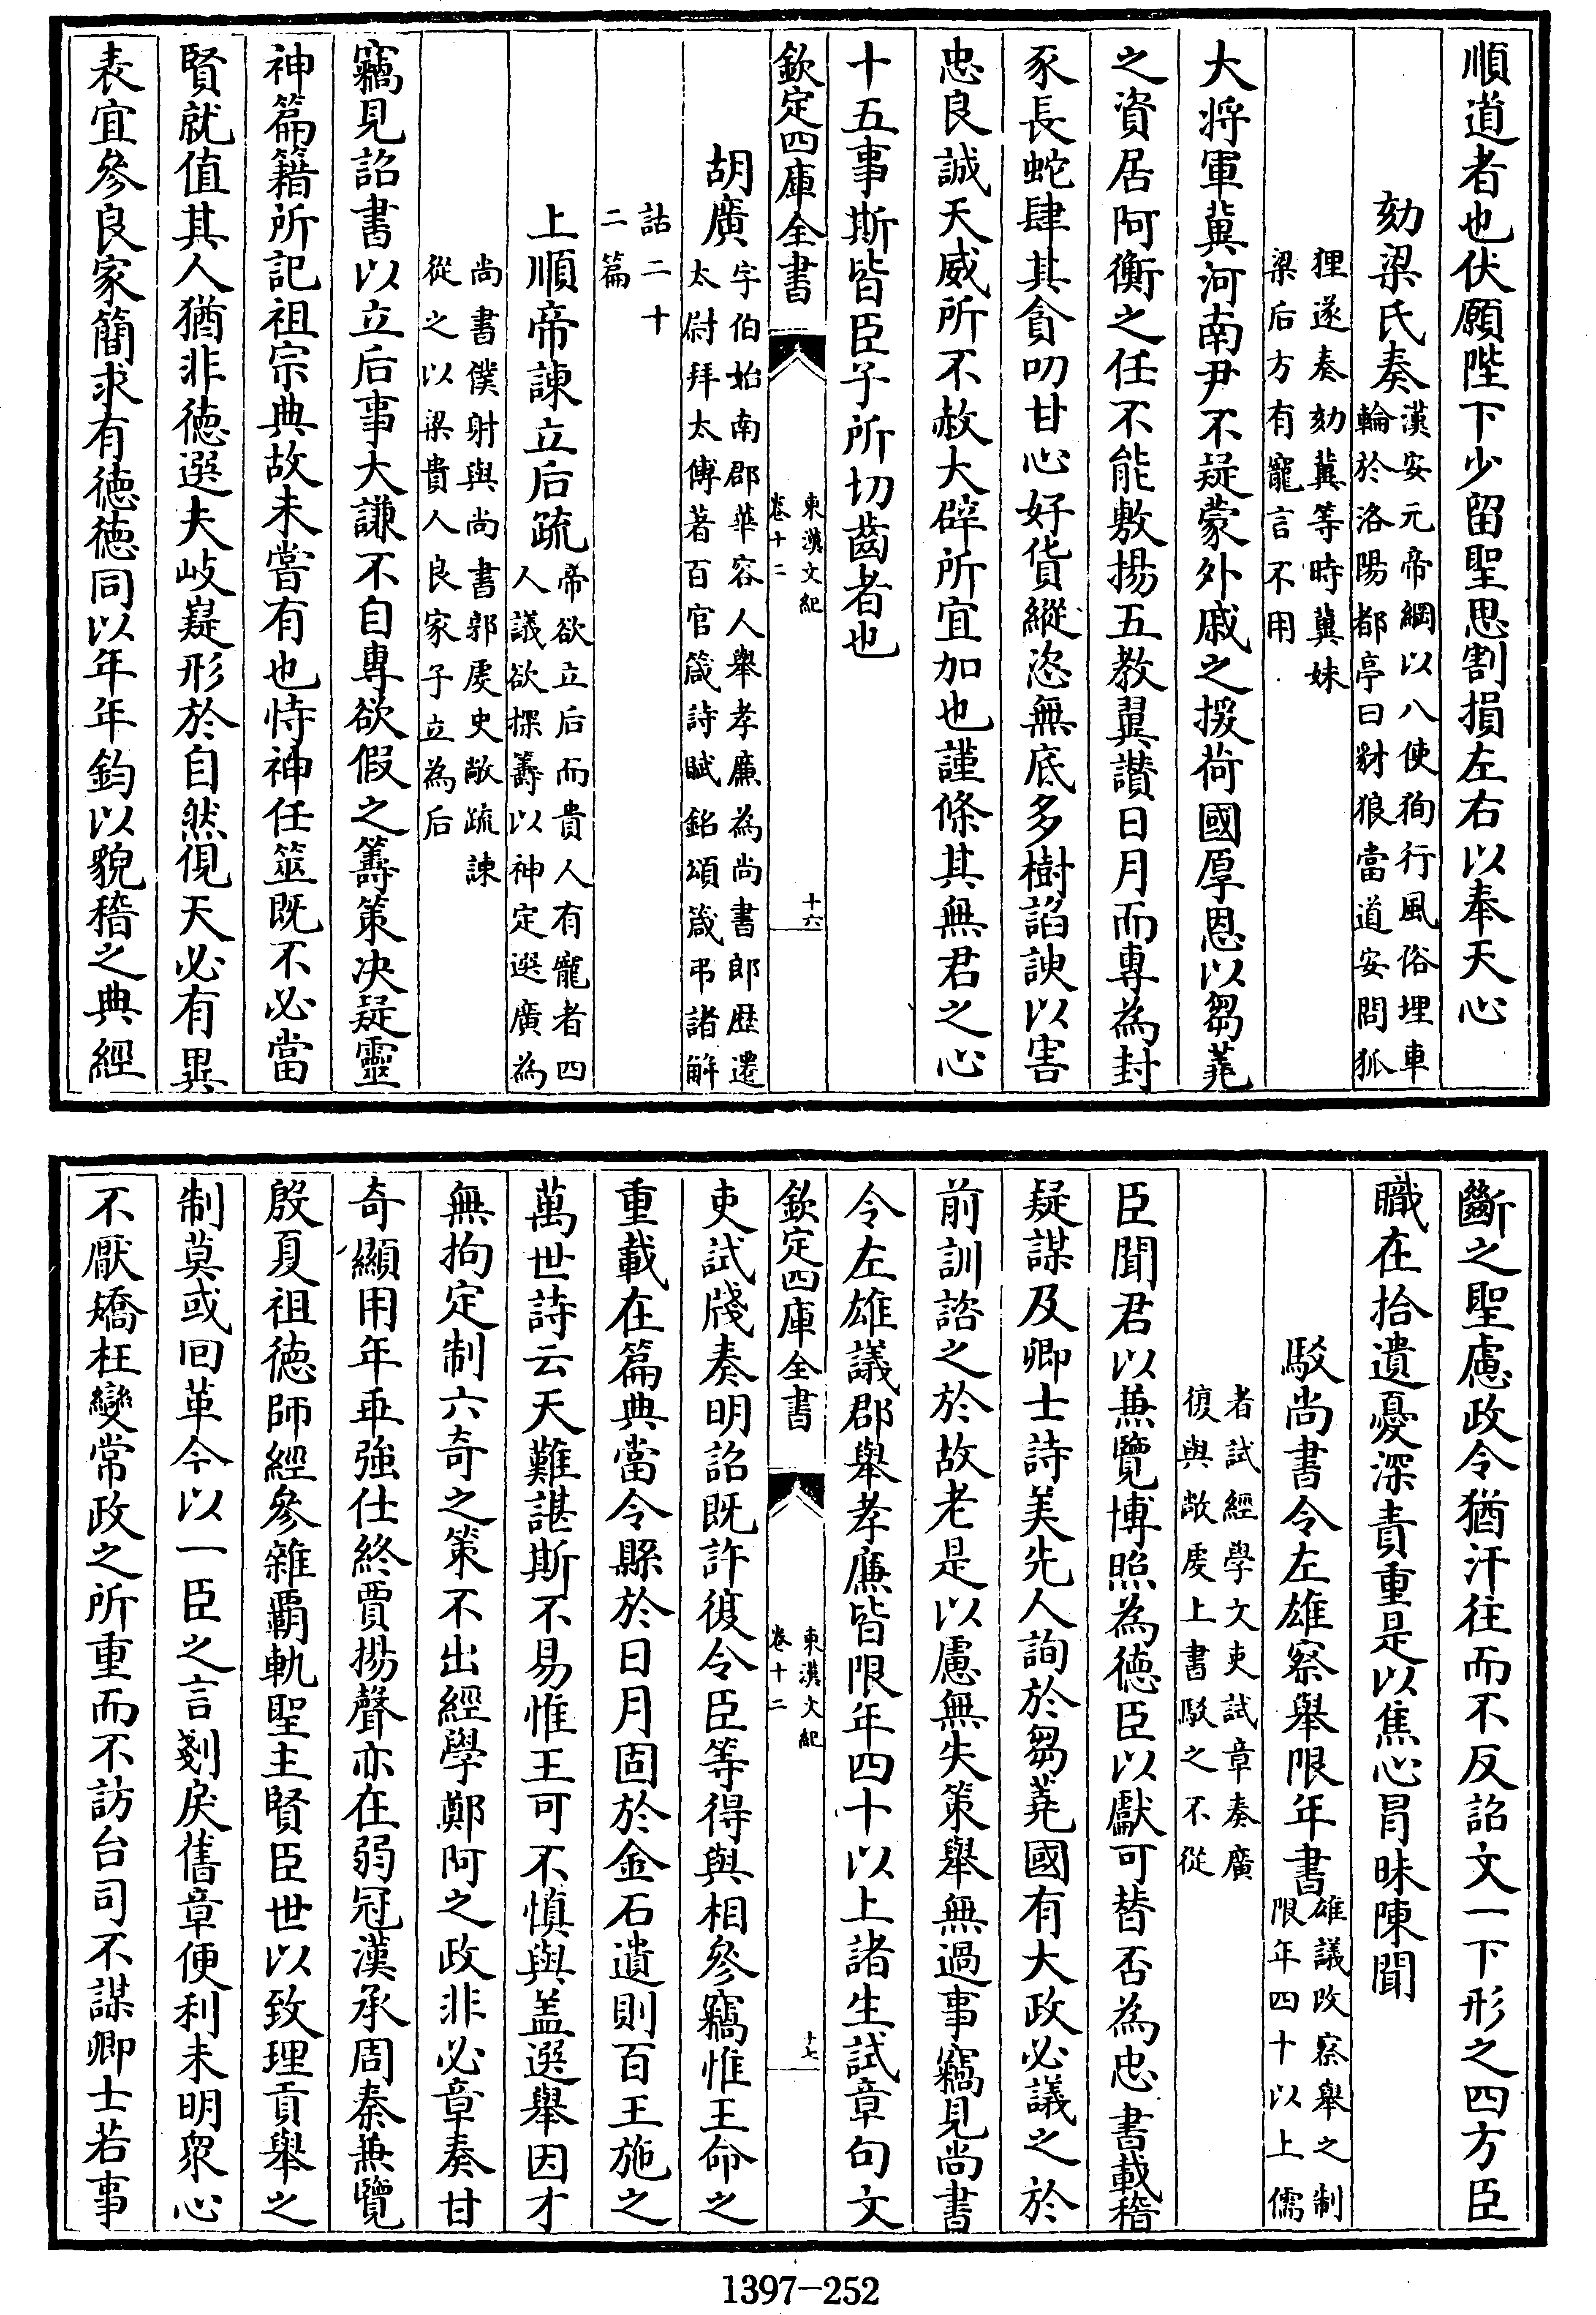 順道者也伏願陛下少留聖思割損左右以奉天心
劾梁氏奏漢安元帝綱以八使徇行風俗埋車
輪於洛陽都亭曰豺狼當道安問狐
狸遂奏劾冀等時冀妹
梁后方有寵言不用
大將軍冀河南尹不疑蒙外戚之援荷國厚恩以芻蕘
之資居阿衡之任不能敷揚五教翼讚日月而專為封
豕長蛇肆其貪叨甘心好貨縱恣無底多樹諂諛以害
忠良誠天威所不赦大辟所宜加也謹條其無君之心
十五事斯皆臣子所切齒者也
欽定四庫全書
東漢文紀
卷十二
十六
胡廣字伯始南郡華容人舉孝廉為尚書郎歴遷
太尉拜太傅著百官箴詩賦銘頌箴弔諸解
詁二十
二篇
上順帝諫立后疏帝欲立后而貴人有寵者四
人議欲探籌以神定選廣為
尚書僕射與尚書郭䖍史敞疏諫
從之以梁貴人良家子立為后
竊見詔書以立后事大謙不自專欲假之籌策决疑靈
神篇籍所記祖宗典故未嘗有也恃神任筮既不必當
賢就值其人猶非徳選夫岐嶷形於自然俔天必有異
表宜參良家簡求有徳徳同以年年鈞以貌稽之典經
斷之聖慮政令猶汗往而不反詔文一下形之四方臣
職在拾遺憂深責重是以焦心冒昧陳聞
駁尚書令左雄察舉限年書雄議改察舉之制
限年四十以上儒
者試經學文吏試章奏廣
復與敞䖍上書駁之不從
臣聞君以兼覽博照為徳臣以獻可替否為忠書載稽
疑謀及卿士詩美先人詢於芻蕘國有大政必議之於
前訓諮之於故老是以慮無失策舉無過事竊見尚書
令左雄議郡舉孝廉皆限年四十以上諸生試章句文
欽定四庫全書
東漢文紀
卷十二
十七
吏試牋奏明詔既許復令臣等得與相參竊惟王命之
重載在篇典當令縣於日月固於金石遺則百王施之
萬世詩云天難諶斯不易惟王可不慎與盖選舉因才
無拘定制六奇之策不出經學鄭阿之政非必章奏甘
奇顯用年乖強仕終賈揚聲亦在弱冠漢承周秦兼覽
殷夏祖徳師經參雜霸軌聖主賢臣世以致理貢舉之
制莫或回革今以一臣之言剗戾舊章便利未明衆心
不厭矯枉變常政之所重而不訪台司不謀卿士若事
1397-252